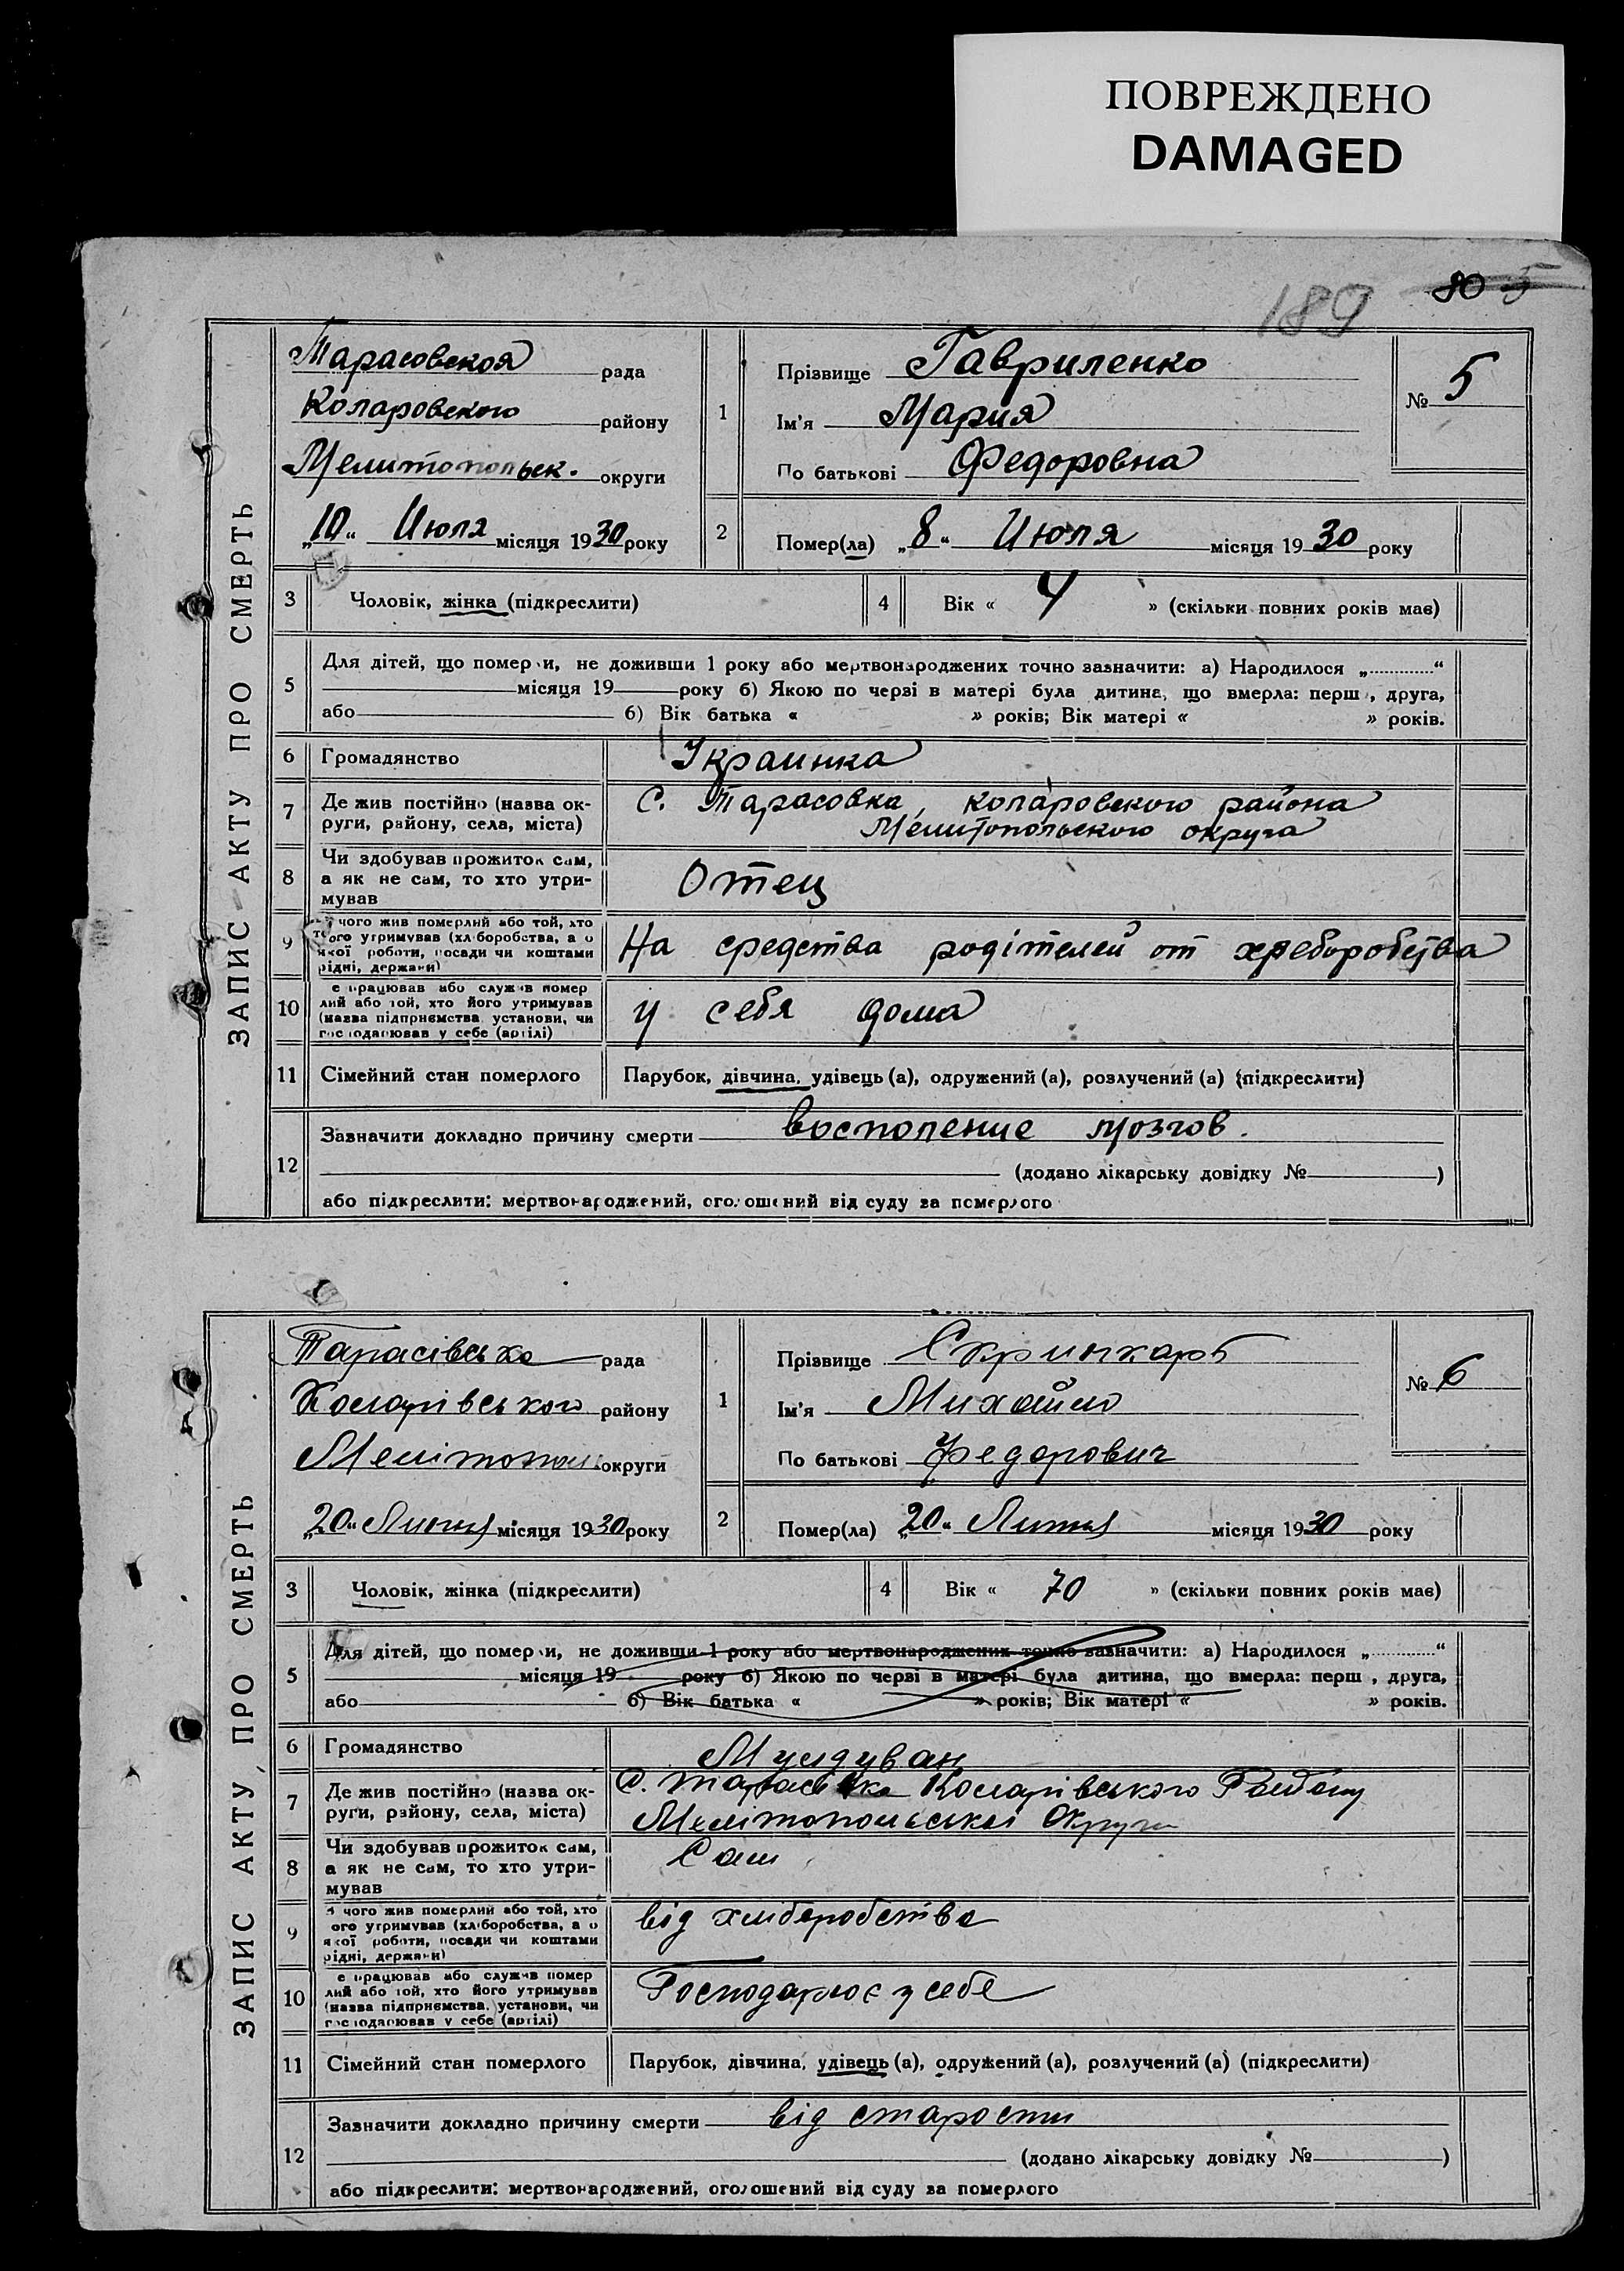 ПОВРЕЖДЕНО
DAMAGED
189
80 5
ЗАПИС АКТУ ПРО СМЕРТЬ
Тарасовская рада
Коларовского району
Мелитопольск. округи
„10“ Июля місяця 1930 року
1
Прізвище Гавриленко
Ім'я Мария
По батькові Федоровна
№ 5
2
Помер(ла) „8“ Июля місяця 1930 року
3 Чоловік, жінка (підкреслити)
4 Вік « 4 » (скільки повних років має)
5
Для дітей, що помер и, не доживши 1 року або мертвонароджених точно зазначити: а) Народилося „ “
місяця 19 року б) Якою по черзі в матері була дитина, що вмерла: перш , друга,
або б) Вік батька « » років; Вік матері « » років.
6 Громадянство Украинка
7 Де жив постійно (назва ок-
руги, району, села, міста)
С. Тарасовка, Коларовского района
Мелитопольского округа
8 Чи здобував прожиток сам,
а як не сам, то хто утри-
мував
Отец
9 чого жив померлий або той, хто
ого утримував (хл боробства, а о
якої роботи, посади чи коштами
рідні, держави)
На средства родітелей от хлеборобства
10 е працював або служив помер
лий або той, хто його утримував
(назва підприємства, установи, чи
господарював у себе (артілі)
у себя дома
11 Сімейний стан померлого Парубок, дівчина, удівець (а), одружений (а), розлучений (а) (підкреслити)
12 Зазначити докладно причину смерти восполение мозгов.
(додано лікарську довідку № )
або підкреслити: мертвонароджений, оголошений від суду за померлого
ЗАПИС АКТУ ПРО СМЕРТЬ
Тарасівська рада
Коларівського району
Мелітопол округи
„20“ Липня місяця 1930 року
1
Прізвище
Ім'я Михайло
По батькові Федорович
№ 6
2
Помер(ла) „20“ Липня місяця 1930 року
3 Чоловік, жінка (підкреслити)
4 Вік « 70 » (скільки повних років має)
5
Для дітей, що помер и, не доживши 1 року або мертвонароджених точно зазначити: а) Народилося „ “
місяця 19 року б) Якою по черзі в матері була дитина, що вмерла: перш , друга,
або б) Вік батька « » років; Вік матері « » років.
6 Громадянство Мулдуван
7 Де жив постійно (назва ок-
руги, району, села, міста)
С. Тарасівка Коларівського Району
Мелітопольської Округи
8 Чи здобував прожиток сам,
а як не сам, то хто утри-
мував
Сам
9 чого жив померлий або той, хто
ого утримував (хл боробства, а о
якої роботи, посади чи коштами
рідні, держави)
від хліборобства
10 е працював або служив помер
лий або той, хто його утримував
(назва підприємства, установи, чи
господарював у себе (артілі)
Господарює у себе
11 Сімейний стан померлого Парубок, дівчина, удівець (а), одружений (а), розлучений (а) (підкреслити)
12 Зазначити докладно причину смерти від старости
(додано лікарську довідку № )
або підкреслити: мертвонароджений, оголошений від суду за померлого